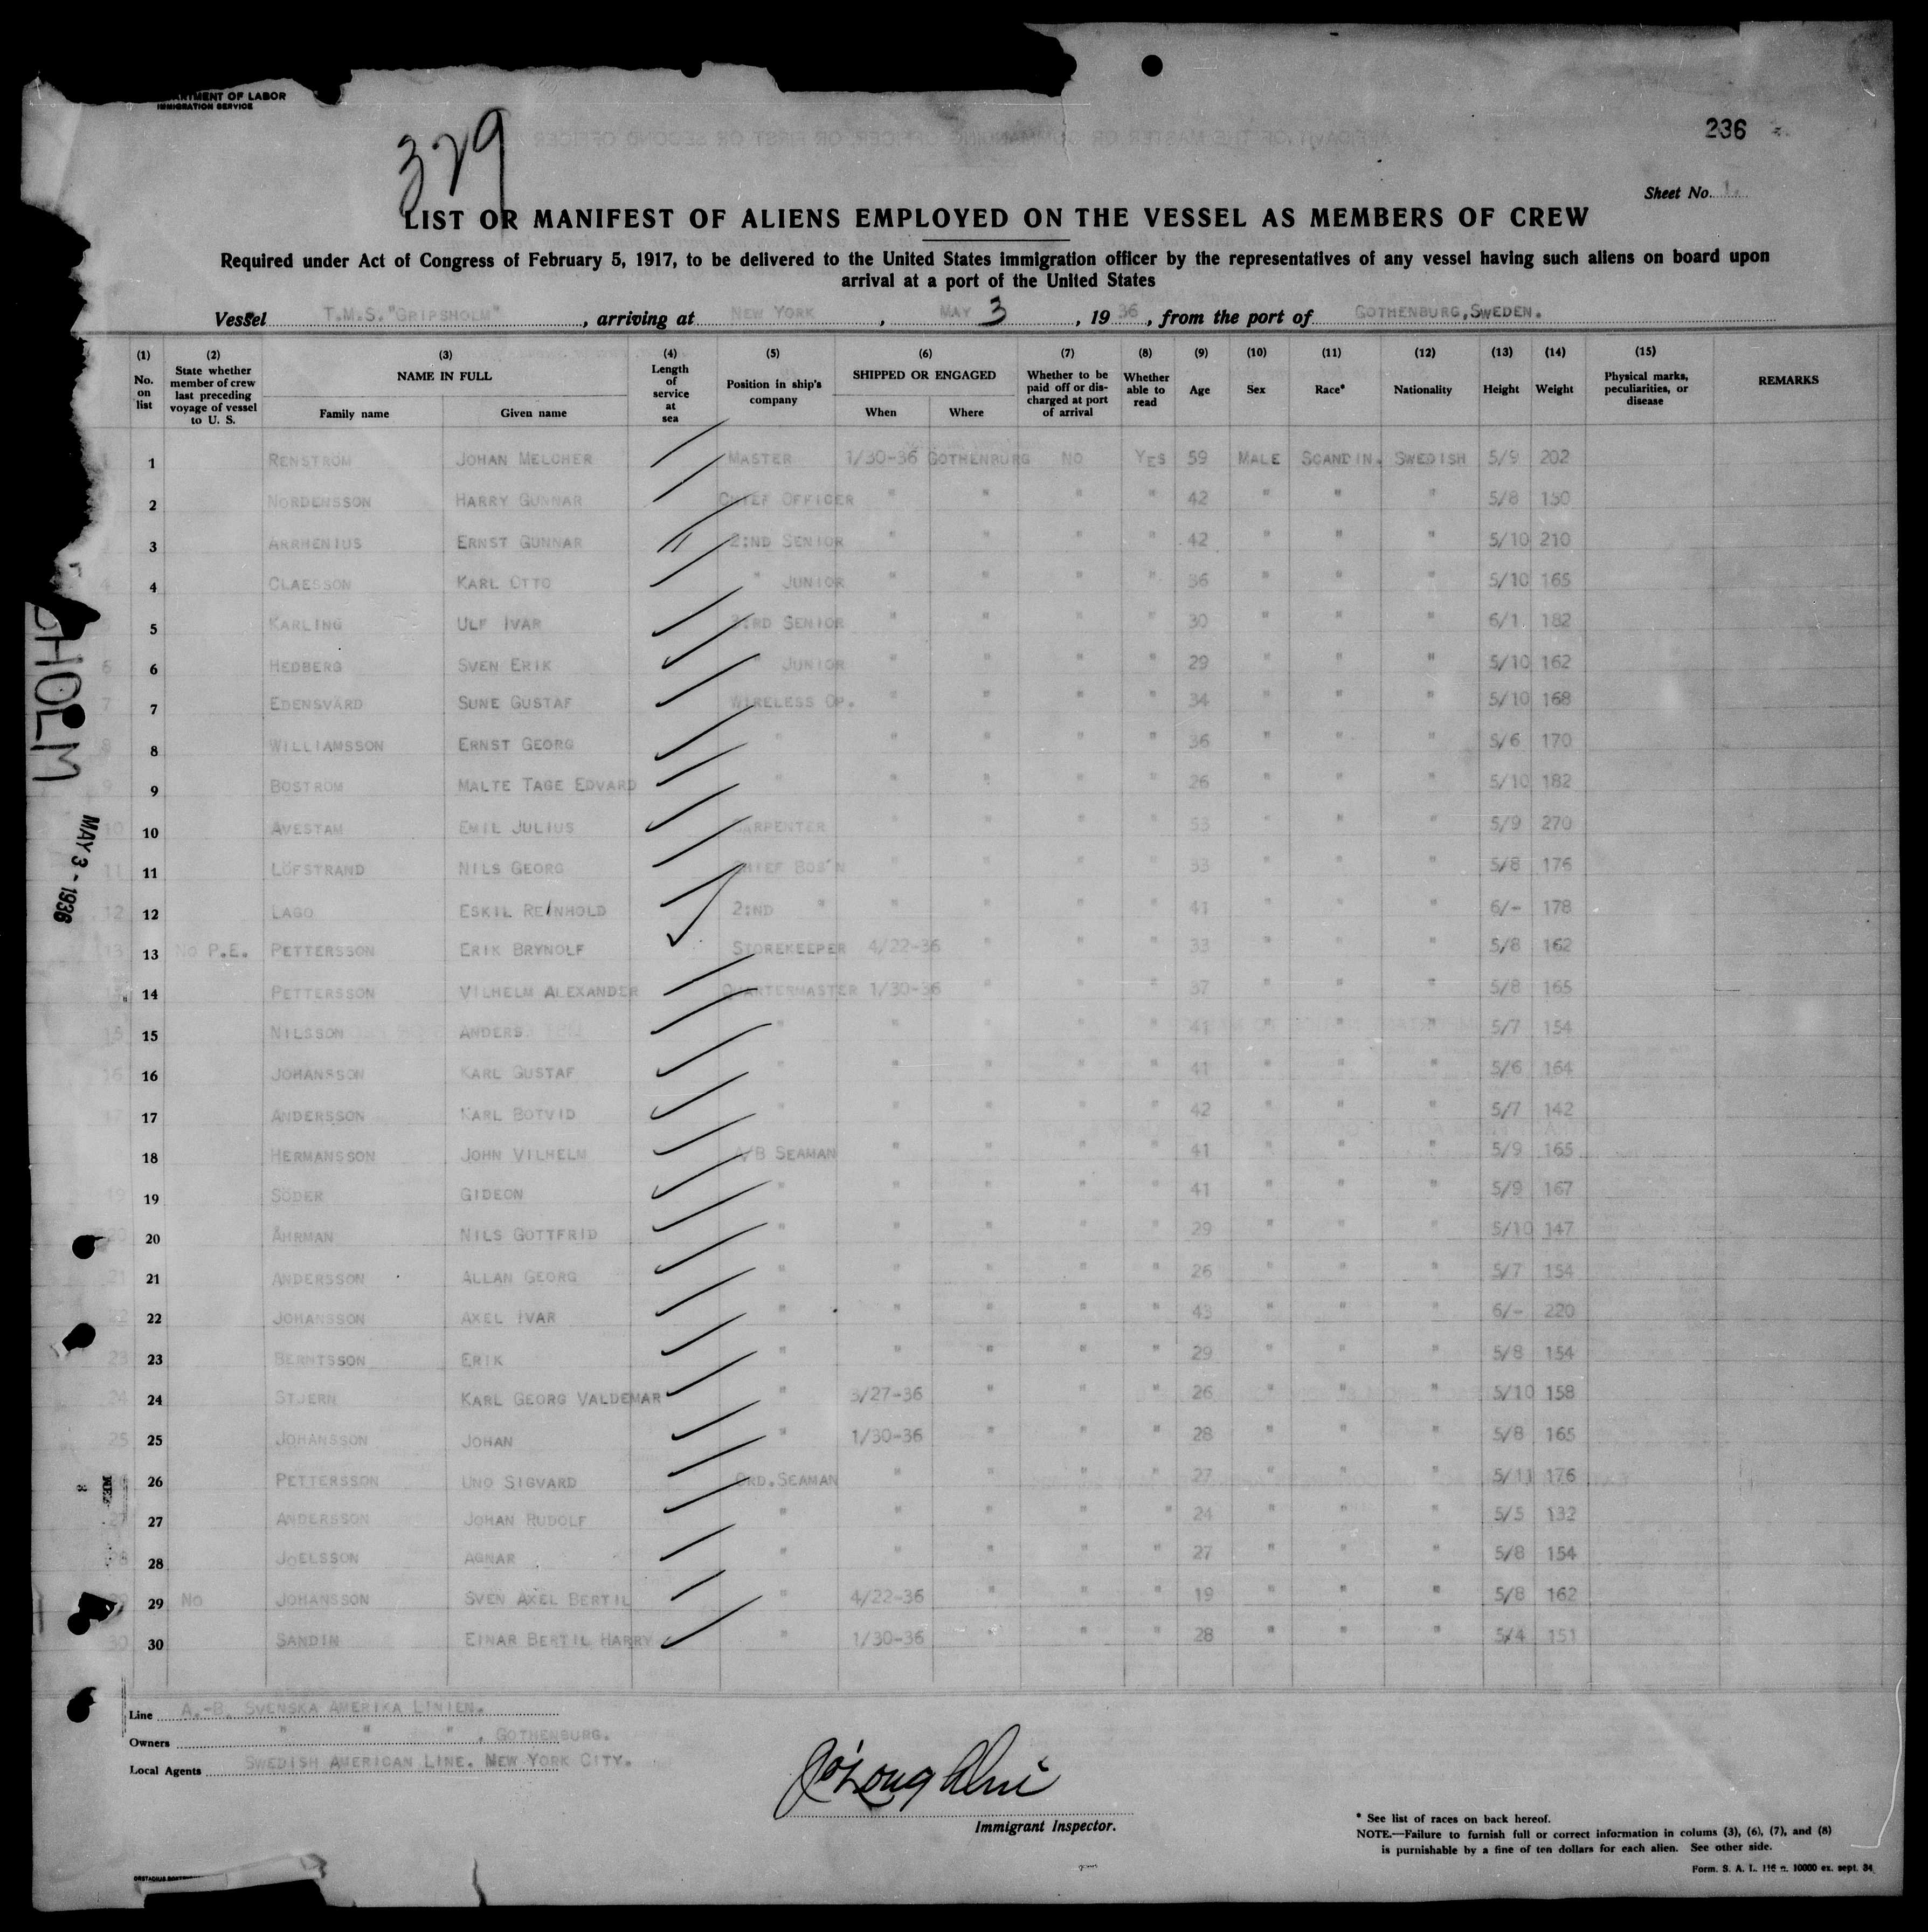 MENT OF LABOR
IMMIGRATION SERVICE
329
236
Sheet No. 1.
LIST OR MANIFEST OF ALIENS EMPLOYED ON THE VESSEL AS MEMBERS OF CREW
Required under Act of Congress of February 5, 1917, to be delivered to the United States immigration officer by the representatives of any vessel having such aliens on board upon
arrival at a port of the United States
Vessel T.M.S. "GRIPSHOLM", arriving at NEW YORK, MAY 3, 1936, from the port of GOTHENBURG, SWEDEN.
(1) No. on list (2) State whether member of crew last preceding voyage of vessel to U. S. (3) NAME IN FULL Family name Given name (4) Length of service at sea (5) Position in ship's company (6) SHIPPED OR ENGAGED When Where (7) Whether to be paid off or discharged at port of arrival (8) Whether able to read (9) Age (10) Sex (11) Race* (12) Nationality (13) Height (14) Weight (15) Physical marks, peculiarities, or disease REMARKS
1 RENSTRÖM JOHAN MELCHER MASTER 1/30-36 GOTHENBURG NO YES 59 MALE SCANDIN. SWEDISH 5/9 202
2 NORDENSSON HARRY GUNNAR CHIEF OFFICER " " " " 42 " " " 5/8 150
3 ARRHENIUS ERNST GUNNAR 2:ND SENIOR " " " " 42 " " " 5/10 210
4 CLAESSON KARL OTTO " JUNIOR " " " " 36 " " " 5/10 165
5 KARLING ULF IVAR 3:RD SENIOR " " " " 30 " " " 6/1 182
6 HEDBERG SVEN ERIK " JUNIOR " " " " 29 " " " 5/10 162
7 EDENSVÄRD SUNE GUSTAF WIRELESS OP. " " " " 34 " " " 5/10 168
8 WILLIAMSSON ERNST GEORG " " " " " 36 " " " 5/6 170
9 BOSTRÖM MALTE TAGE EDVARD " " " " " 26 " " " 5/10 182
10 AVESTAM EMIL JULIUS CARPENTER " " " " 53 " " " 5/9 270
11 LÖFSTRAND NILS GEORG CHIEF BOS'N " " " " 33 " " " 5/8 176
12 LAGO ESKIL REINHOLD 2:ND " " " " " 41 " " " 6/- 178
13 NO P.E. PETTERSSON ERIK BRYNOLF STOREKEEPER 4/22-36 " " " 33 " " " 5/8 162
14 PETTERSSON VILHELM ALEXANDER QUARTERMASTER 1/30-36 " " " 37 " " " 5/8 165
15 NILSSON ANDERS " " " " " 41 " " " 5/7 154
16 JOHANSSON KARL GUSTAF " " " " " 41 " " " 5/6 164
17 ANDERSSON KARL BOTVID " " " " " 42 " " " 5/7 142
18 HERMANSSON JOHN VILHELM A/B SEAMAN " " " " 41 " " " 5/9 165
19 SÖDER GIDEON " " " " " 41 " " " 5/9 167
20 ÅHRMAN NILS GOTTFRID " " " " " 29 " " " 5/10 147
21 ANDERSSON ALLAN GEORG " " " " " 26 " " " 5/7 154
22 JOHANSSON AXEL IVAR " " " " " 43 " " " 6/- 220
23 BERNTSSON ERIK " " " " " 29 " " " 5/8 154
24 STJERN KARL GEORG VALDEMAR " 3/27-36 " " " 26 " " " 5/10 158
25 JOHANSSON JOHAN " 1/30-36 " " " 28 " " " 5/8 165
26 PETTERSSON UNO SIGVARD ORD. SEAMAN " " " " 27 " " " 5/11 176
27 ANDERSSON JOHAN RUDOLF " " " " " 24 " " " 5/5 132
28 JOELSSON AGNAR " " " " " 27 " " " 5/8 154
29 NO JOHANSSON SVEN AXEL BERTIL " 4/22-36 " " " 19 " " " 5/8 162
30 SANDIN EINAR BERTIL HARRY " 1/30-36 " " " 28 " " " 5/4 151
HOLM
MAY 3 - 1936
Line A.-B. SVENSKA AMERIKA LINIEN.
Owners " " ", GOTHENBURG.
Local Agents SWEDISH AMERICAN LINE. NEW YORK CITY.
Immigrant Inspector.
* See list of races on back hereof.
NOTE.—Failure to furnish full or correct information in colums (3), (6), (7), and (8)
is purnishable by a fine of ten dollars for each alien. See other side.
Form. S. A. L. 116 n. 10000 ex. sept. 34